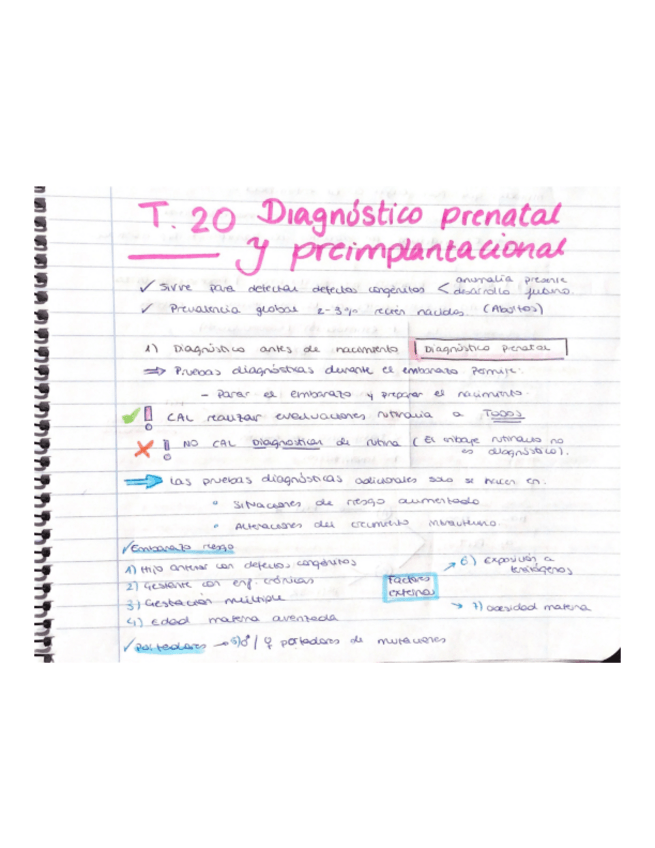 T. 20 Diagnóstico prenatal
y preimplantacional
✓ Sirve para detectar defectos congénitos < anomalía presente
desarrollo futuro.
✓ Prevalencia global 2-3% recién nacidos (Abortos)
1) Diagnóstico antes de nacimiento Diagnóstico prenatal
⇒ Pruebas diagnósticas durante el embarazo permite:
- Parar el embarazo y preparar el nacimiento.
✓ ! CAL realizar evaluaciones rutinaria a TODOS
✗ ! NO CAL Diagnosticar de rutina (El cribaje rutinario no
es diagnóstico).
⇒ Las pruebas diagnósticas adicionales solo se hacen en:
• Situaciones de riesgo aumentado
• Alteraciones del crecimiento intrauterino.
✓ Embarazo riesgo
1) Hijo anterior con defectos congénitos
2) Gestante con enf. crónicas
3) Gestación múltiple
4) Edad materna avanzada
Factores
externos
→ 6) exposición a
teratógenos
→ 7) obesidad materna
✓ Portadores → 5) ♂ / ♀ portadores de mutaciones